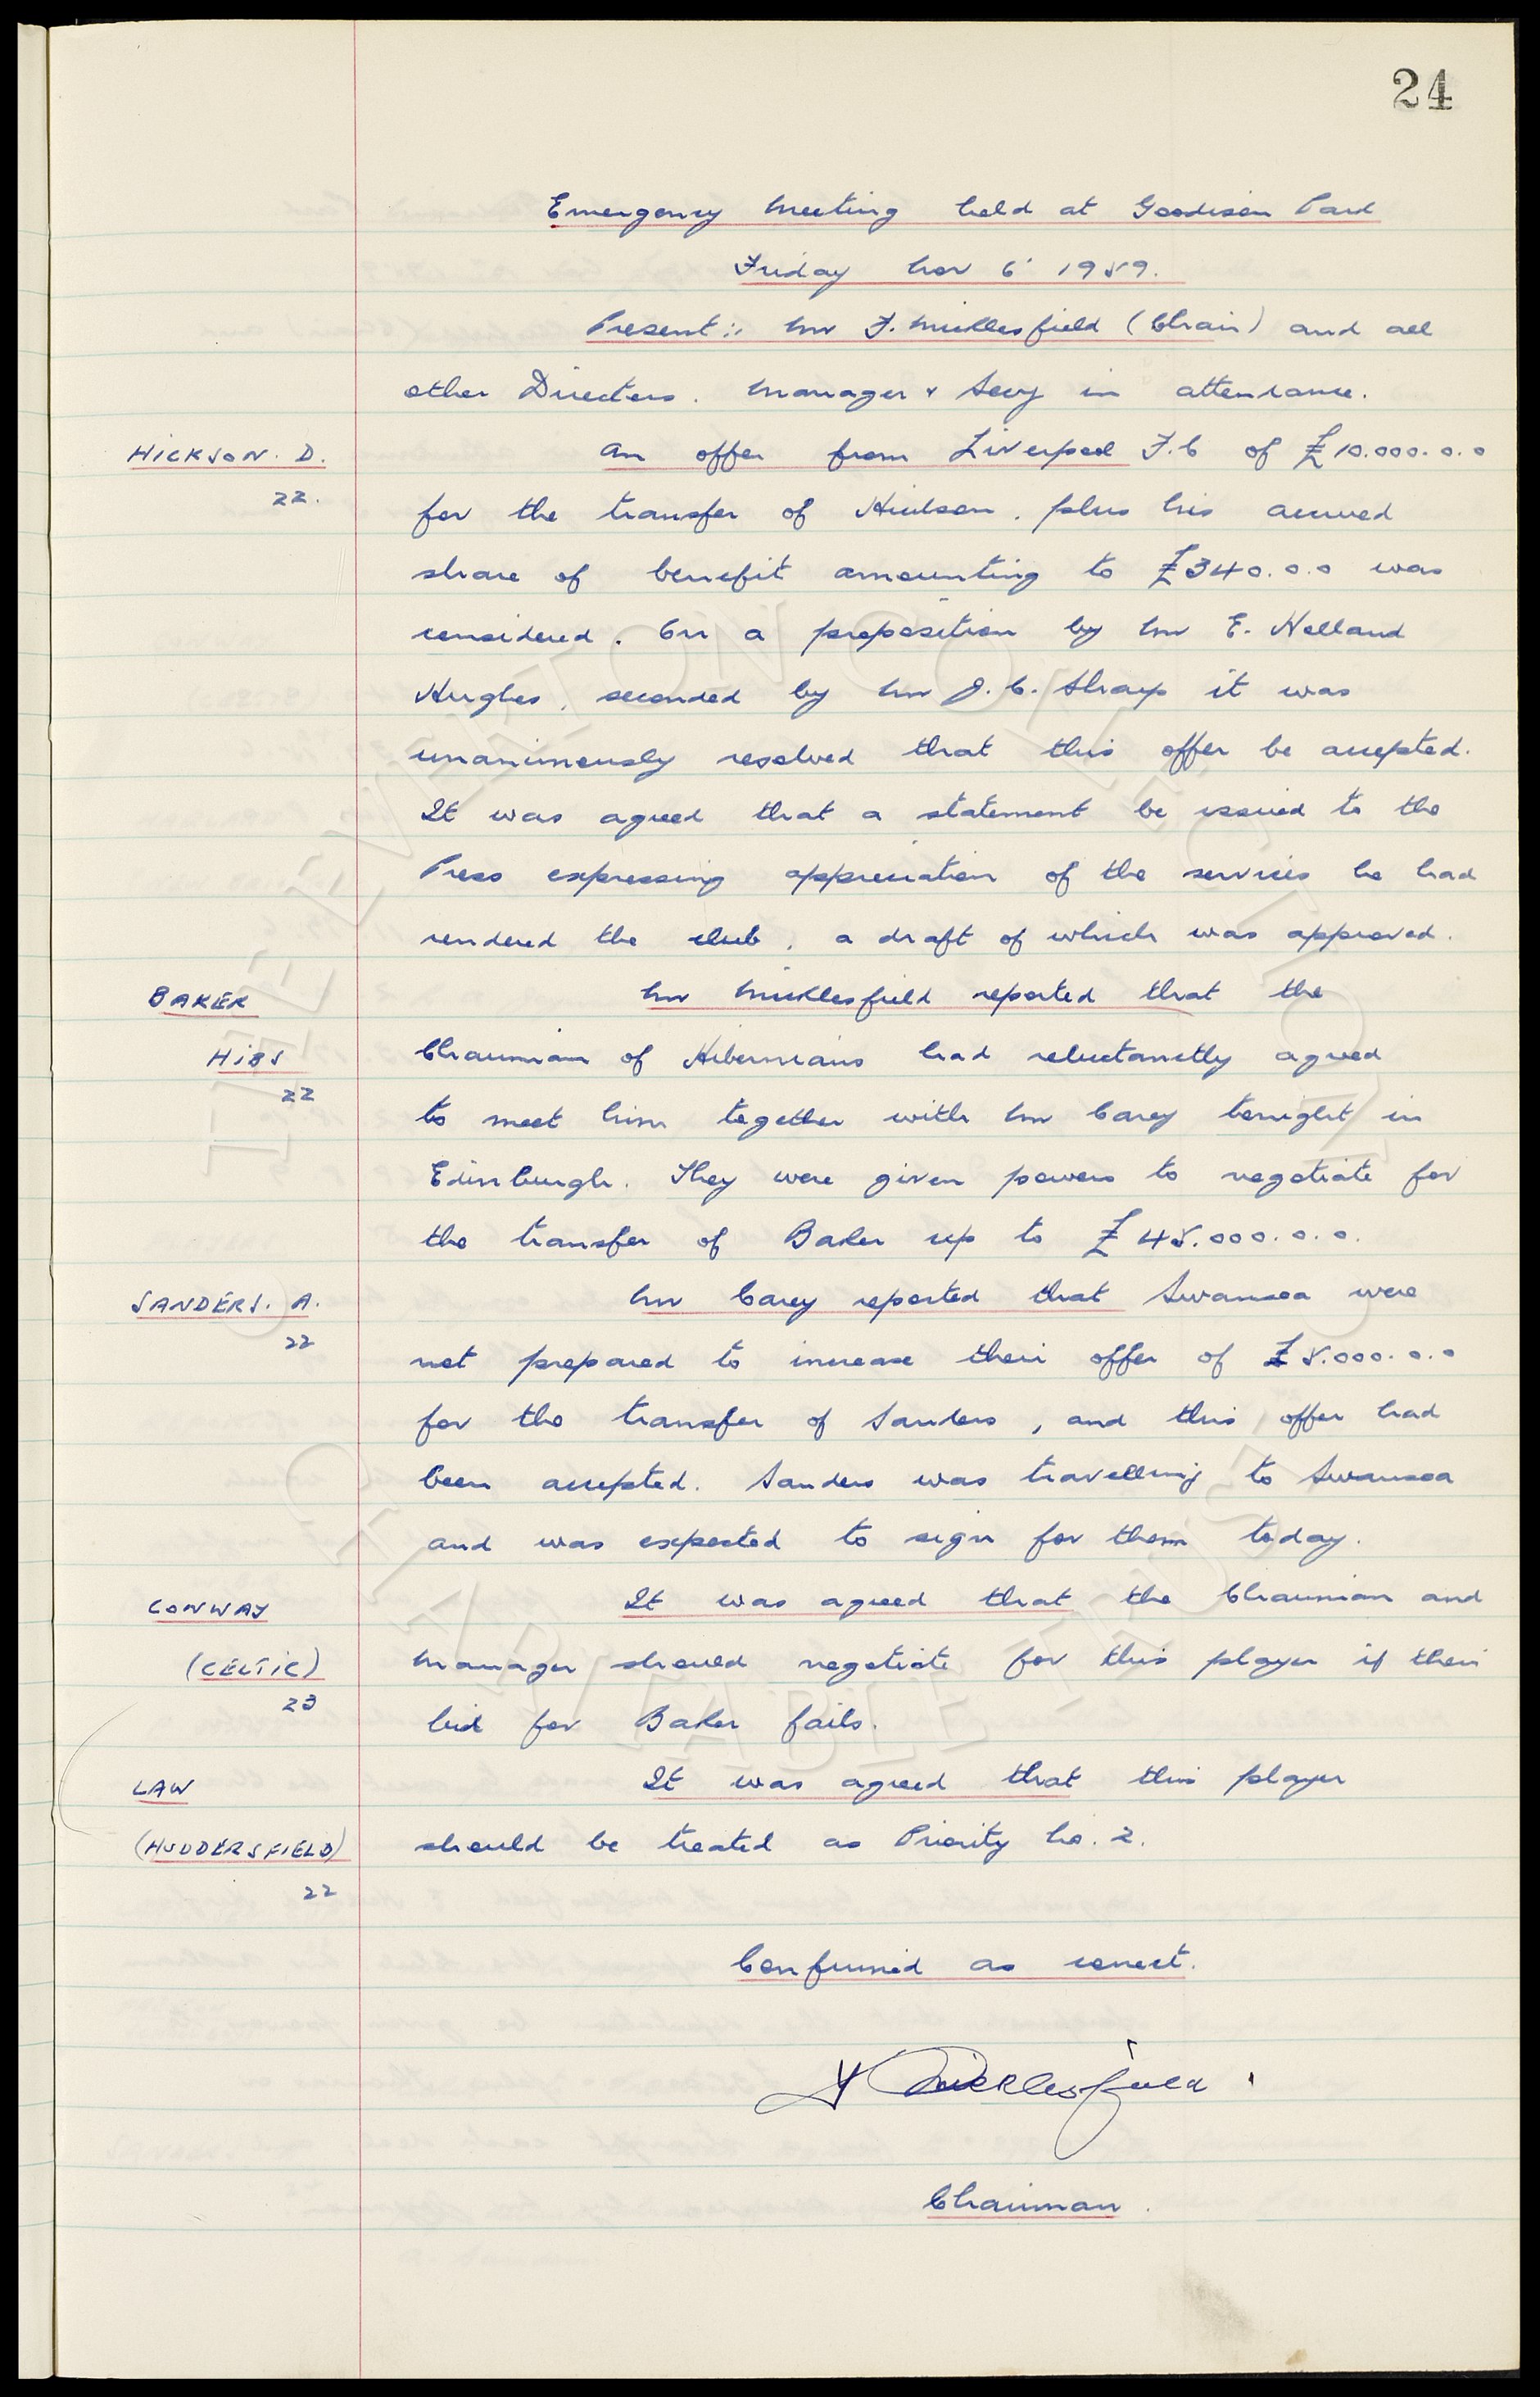 24
Emergency Meeting held at Goodison Park
Friday Nov 6' 1959.
Present:- Mr F. Micklesfield (Chair) and all
other Directors. Manager & Secy in attendance.
HICKSON. D.
An offer from Liverpool F.C of £10.000.0.0
22.
for the transfer of Hickson, plus his accrued
share of benefit amounting to £340.0.0 was
considered. On a proposition by Mr E. Holland
Hughes, seconded by Mr J.C. Sharp it was
unanimously resolved that this offer be accepted.
It was agreed that a statement be issued to the
Press expressing appreciation of the services he had
rendered the club, a draft of which was approved.
BAKER
Mr Micklesfield reported that the
HIBS
Chairman of Hibernians had reluctantly agreed
22
to meet him together with Mr Carey tonight in
Edinburgh. They were given powers to negotiate for
the transfer of Baker up to £45.000.0.0.
SANDERS. A.
Mr Carey reported that Swansea were
22
not prepared to increase their offer of £5.000.0.0
for the transfer of Sanders, and this offer had
been accepted. Sanders was travelling to Swansea
and was expected to sign for them today.
CONWAY
It was agreed that the Chairman and
(CELTIC)
Manager should negotiate for this player if their
23
bid for Baker fails.
LAW
It was agreed that this player
(HUDDERSFIELD)
should be treated as Priority No. 2.
22
Confirmed as correct.
F Micklesfield
Chairman.